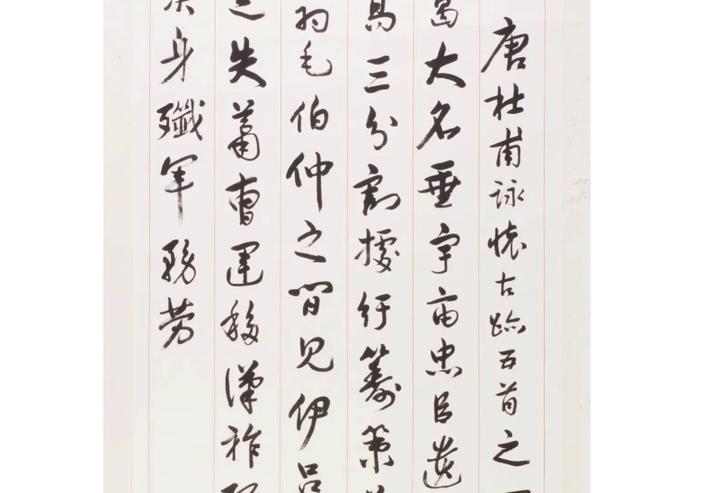 唐杜甫詠懷古跡五首之
葛大名垂宇宙忠臣遺
高三分割據紆籌策
羽毛伯仲之間見伊呂
之失蕭曹運移漢祚
身殲軍務勞